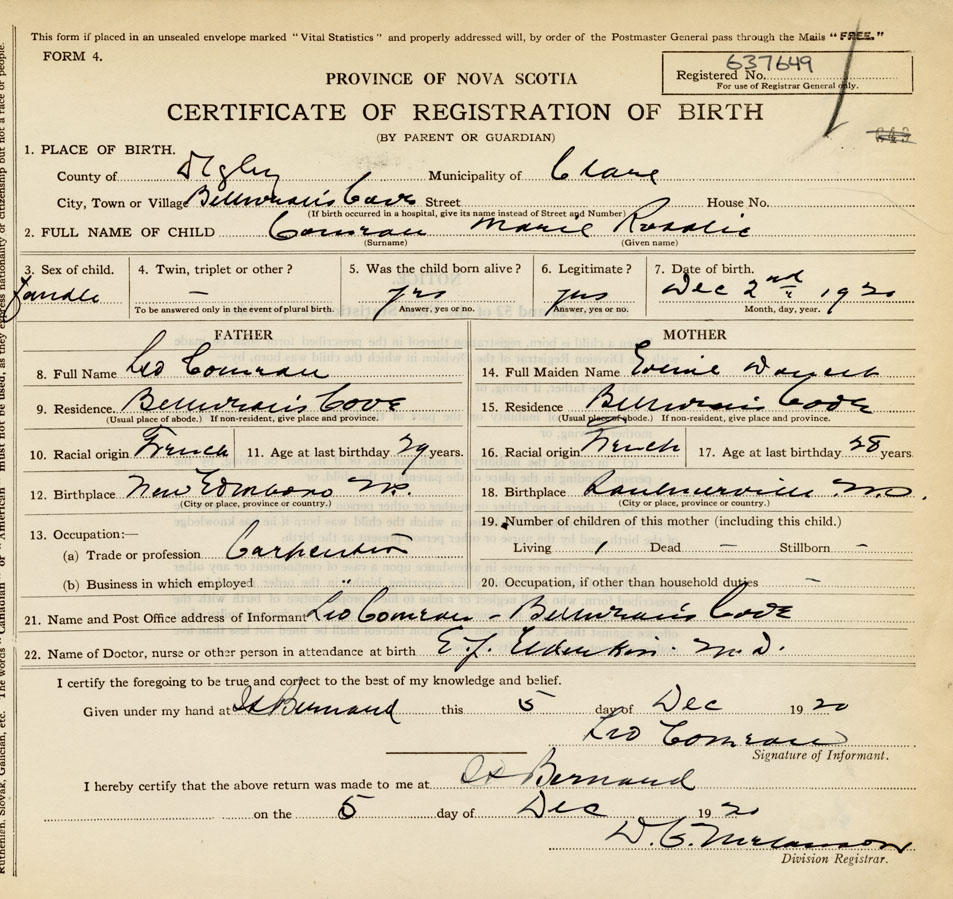 This form if placed in an unsealed envelope marked "Vital Statistics" and properly addressed will, by order of the Postmaster General pass through the Mails "FREE."
FORM 4.
637649
Registered No.
For use of Registrar General only.
PROVINCE OF NOVA SCOTIA
CERTIFICATE OF REGISTRATION OF BIRTH
(BY PARENT OR GUARDIAN)
1. PLACE OF BIRTH.
County of Digby Municipality of Clare
City, Town or Village Belliveau's Cove Street House No.
(If birth occurred in a hospital, give its name instead of Street and Number)
2. FULL NAME OF CHILD Comeau Marie Rosalie
(Surname) (Given name)
3. Sex of child. 4. Twin, triplet or other? 5. Was the child born alive? 6. Legitimate? 7. Date of birth.
female — yes yes Dec 2nd 1920
To be answered only in the event of plural birth. Answer, yes or no. Answer, yes or no. Month, day, year.
FATHER
8. Full Name Leo Comeau
9. Residence. Belliveau's Cove
(Usual place of abode.) If non-resident, give place and province.
10. Racial origin French 11. Age at last birthday 29 years.
12. Birthplace New Edinboro N.S.
(City or place, province or country.)
13. Occupation:—
(a) Trade or profession Carpenter
(b) Business in which employed "
MOTHER
14. Full Maiden Name
15. Residence Belliveau's Cove
(Usual place of abode.) If non-resident, give place and province.
16. Racial origin French 17. Age at last birthday 28 years
18. Birthplace N.S.
(City or place, province or country.)
19. Number of children of this mother (including this child.)
Living 1 Dead — Stillborn —
20. Occupation, if other than household duties —
21. Name and Post Office address of Informant Leo Comeau - Belliveau's Cove
22. Name of Doctor, nurse or other person in attendance at birth E. F. Elderkin. M.D.
I certify the foregoing to be true and correct to the best of my knowledge and belief.
Given under my hand at St Bernard this 5 day of Dec 1920
Leo Comeau
Signature of Informant.
I hereby certify that the above return was made to me at St Bernard
on the 5 day of Dec 1920
Division Registrar.